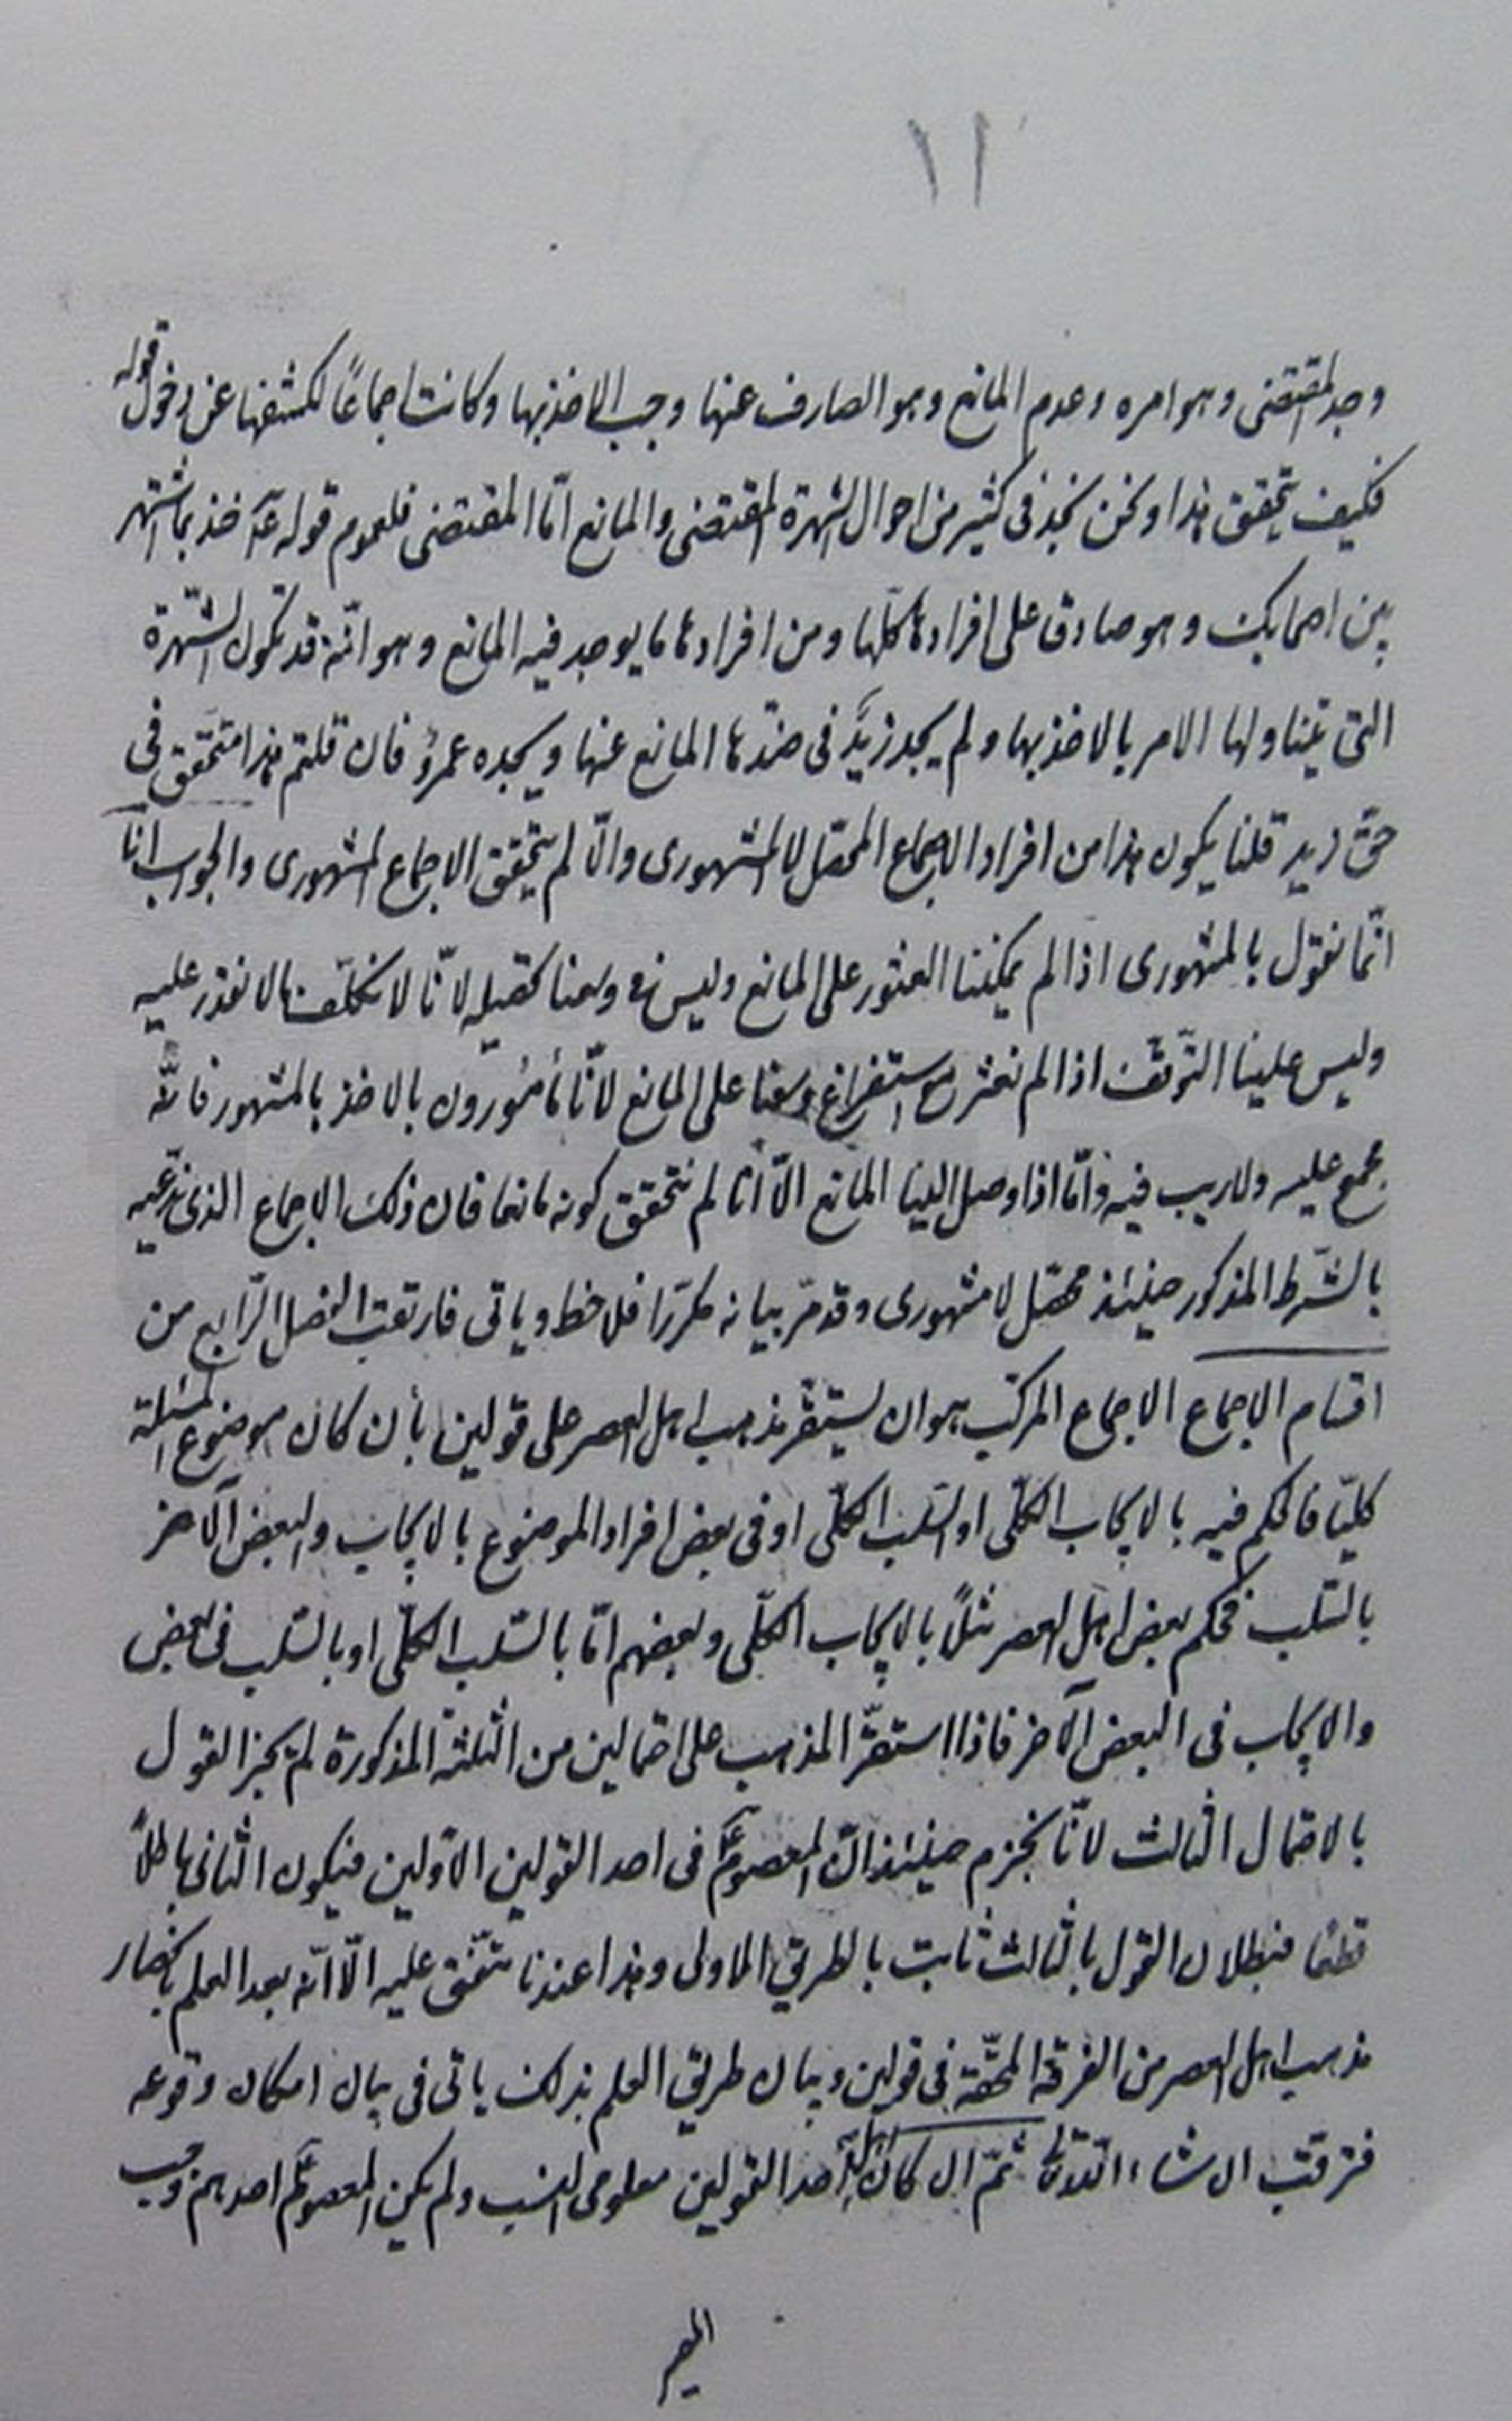 ١١
وجد المقتضى وهو امره وعدم المانع وهو الصارف عنها وجب الاخذ بها وكانت اجماعًا لكشفها عن دخول قوله
فكيف يتحقق هذا ونحن نجد فى كثير من احوال الشهرة المقتضى والمانع امّا المقتضى فلعموم قوله عليه السلام خذ بما اشتهر
بين اصحابك وهو صادق على افرادها كلّها ومن افرادها ما يوجد فيه المانع وهو انّه قد تكون الشّهرة
التى يتناولها الامر بالاخذ بها ولم يجد زيدٌ فى ضدّها المانع عنها ويجده عمروٌ فان قلتم هذا متحقّق فى
حقّ زيد قلنا يكون هذا من افراد الاجماع المحصّل لا المشهورى والّا لم يتحقق الاجماع المشهورى والجواب انّا
انّما نقول بالمشهورى اذا لم يمكننا العثور على المانع وليس فى وسعنا تحصيله لانّا لا نكلّف بما لا نقدر عليه
وليس علينا التّوقّف اذا لم نعثر مع استفراغ وسعنا على المانع لانّا مأمورون بالاخذ بالمشهور فانّه
مجمع عليه ولا ريب فيه وامّا اذا وصل الينا المانع الّا انّا لم نتحقق كونه مانعا فان ذلك الاجماع الذى ندّعيه
بالشّرط المذكور حينئذ محصّل لا مشهورى وقد مرّ بيانه مكرّرا فلاحظ وياتى فارتقب الفصل الرّابع من
اقسام الاجماع الاجماع المركّب هو ان يستقرّ مذهب اهل العصر على قولين بأن كان موضوع المسئلة
كليّا فالحكم فيه بالايجاب الكلّى او السّلب الكلّى او فى بعض افراد الموضوع بالايجاب والبعض الآخر
بالسّلب فحكم بعض اهل العصر مثلًا بالايجاب الكلّى وبعضهم امّا بالسّلب الكلّى او بالسّلب فى بعض
والايجاب فى البعض الآخر فاذا استقرّ المذهب على احتمالين من الثلثة المذكورة لم يجز القول
بالاحتمال الثالث لانّا نجزم حينئذ انّ المعصوم عليه السلام فى احد القولين الاوّلين فيكون الثانى باطلاً
قطعًا فبطلان القول بالثالث ثابت بالطريق الاولى وهذا عندنا متّفق عليه الّا انّه بعد العلم بانحصار
مذهب اهل العصر من الفرقة المحقّة فى قولين وبيان طريق العلم بذلك ياتى فى بيان امكان وقوعه
فترقّب ان شاء اللّه تعالى ثمّ ان كان اهل احد القولين معلومى النسب ولم يكن المعصوم عليه السلام احدهم وجب
المصير